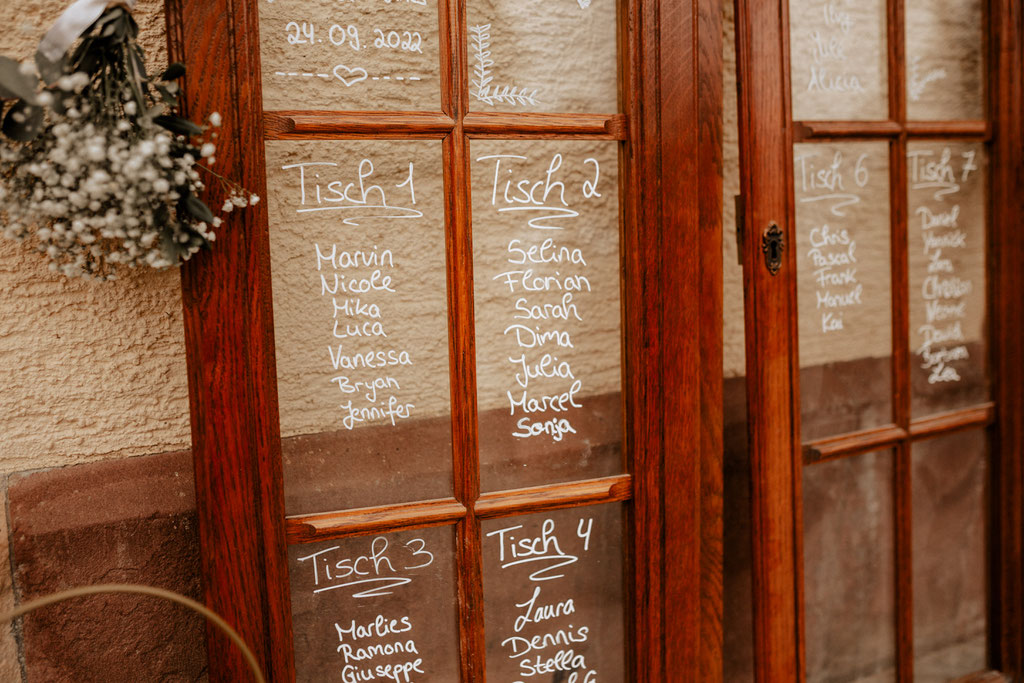 24.09.2022
Tisch 1
Marvin
Nicole
Mika
Luca
Vanessa
Bryan
Jennifer
Tisch 2
Selina
Florian
Sarah
Dima
Julia
Marcel
Sonja
Tisch 3
Marlies
Ramona
Giuseppe
Tisch 4
Laura
Dennis
Stella
Alicia
Tisch 6
Chris
Pascal
Frank
Manuel
Kai
Tisch 7
Daniel
Yannick
Christian
David
Lea